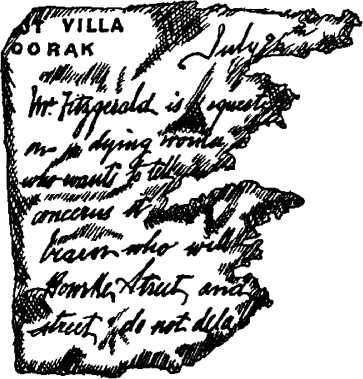 OT VILLA
OORAK
July
Mr. Fitzgerald is request
on a dying woma
who wants to tell
concerns
bearer who will
Bourke Street and
street do not dela